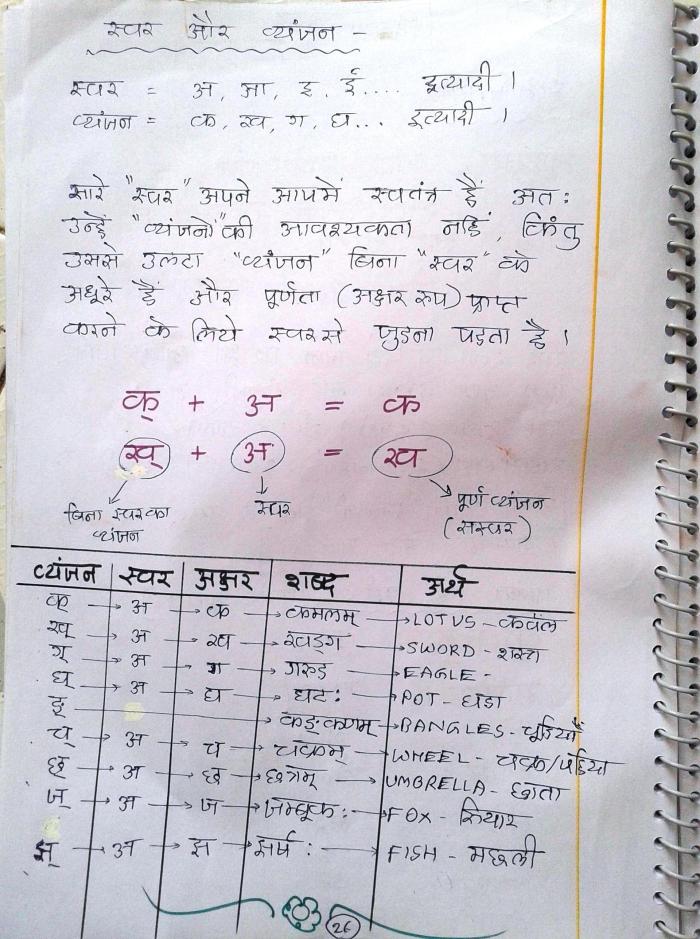 स्वर और व्यंजन -
स्वर = अ, आ, इ, ई.... इत्यादी ।
व्यंजन = क, ख, ग, घ... इत्यादी ।
सारे "स्वर" अपने आपमें स्वतंत्र हैं अत:
उन्हें "व्यंजनों" की आवश्यकता नहिं, किंतु
उससे उलटा "व्यंजन" बिना "स्वर" के
अधूरे हैं और पूर्णता (अक्षर रुप) प्राप्त
करने के लिये स्वर से जुडना पडता है ।
क् + अ = क
ख् + अ = ख
बिना स्वर का व्यंजन
स्वर
पूर्ण व्यंजन (सस्वर)
व्यंजन स्वर अक्षर शब्द अर्थ
क् → अ → क → कमलम् → LOTUS - कवँल
ख् → अ → ख → खड्ग → SWORD - शस्त्र
ग् → अ → ग → गरुड → EAGLE -
घ् → अ → घ → घट: → POT - घडा
ङ् → कङ्कणम् → BANGLES - चूडियाँ
च् → अ → च → चक्रम् → WHEEL - चक्र/पहिया
छ् → अ → छ → छत्रम् → UMBRELLA - छाता
ज् → अ → ज → जम्बूक: → FOX - सियार
झ् → अ → झ → झर्ष: → FISH - मछली
26